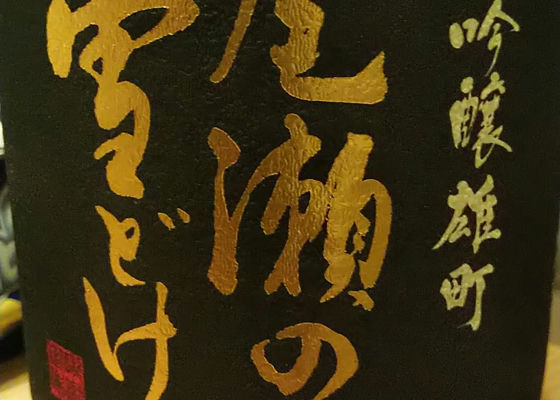 吟醸雄町
尾瀬の
雪どけ